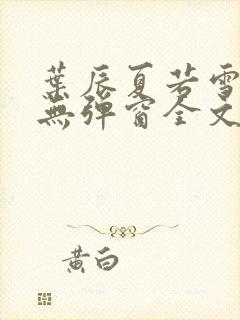 葉辰夏若雪
無彈窗全文
黃白